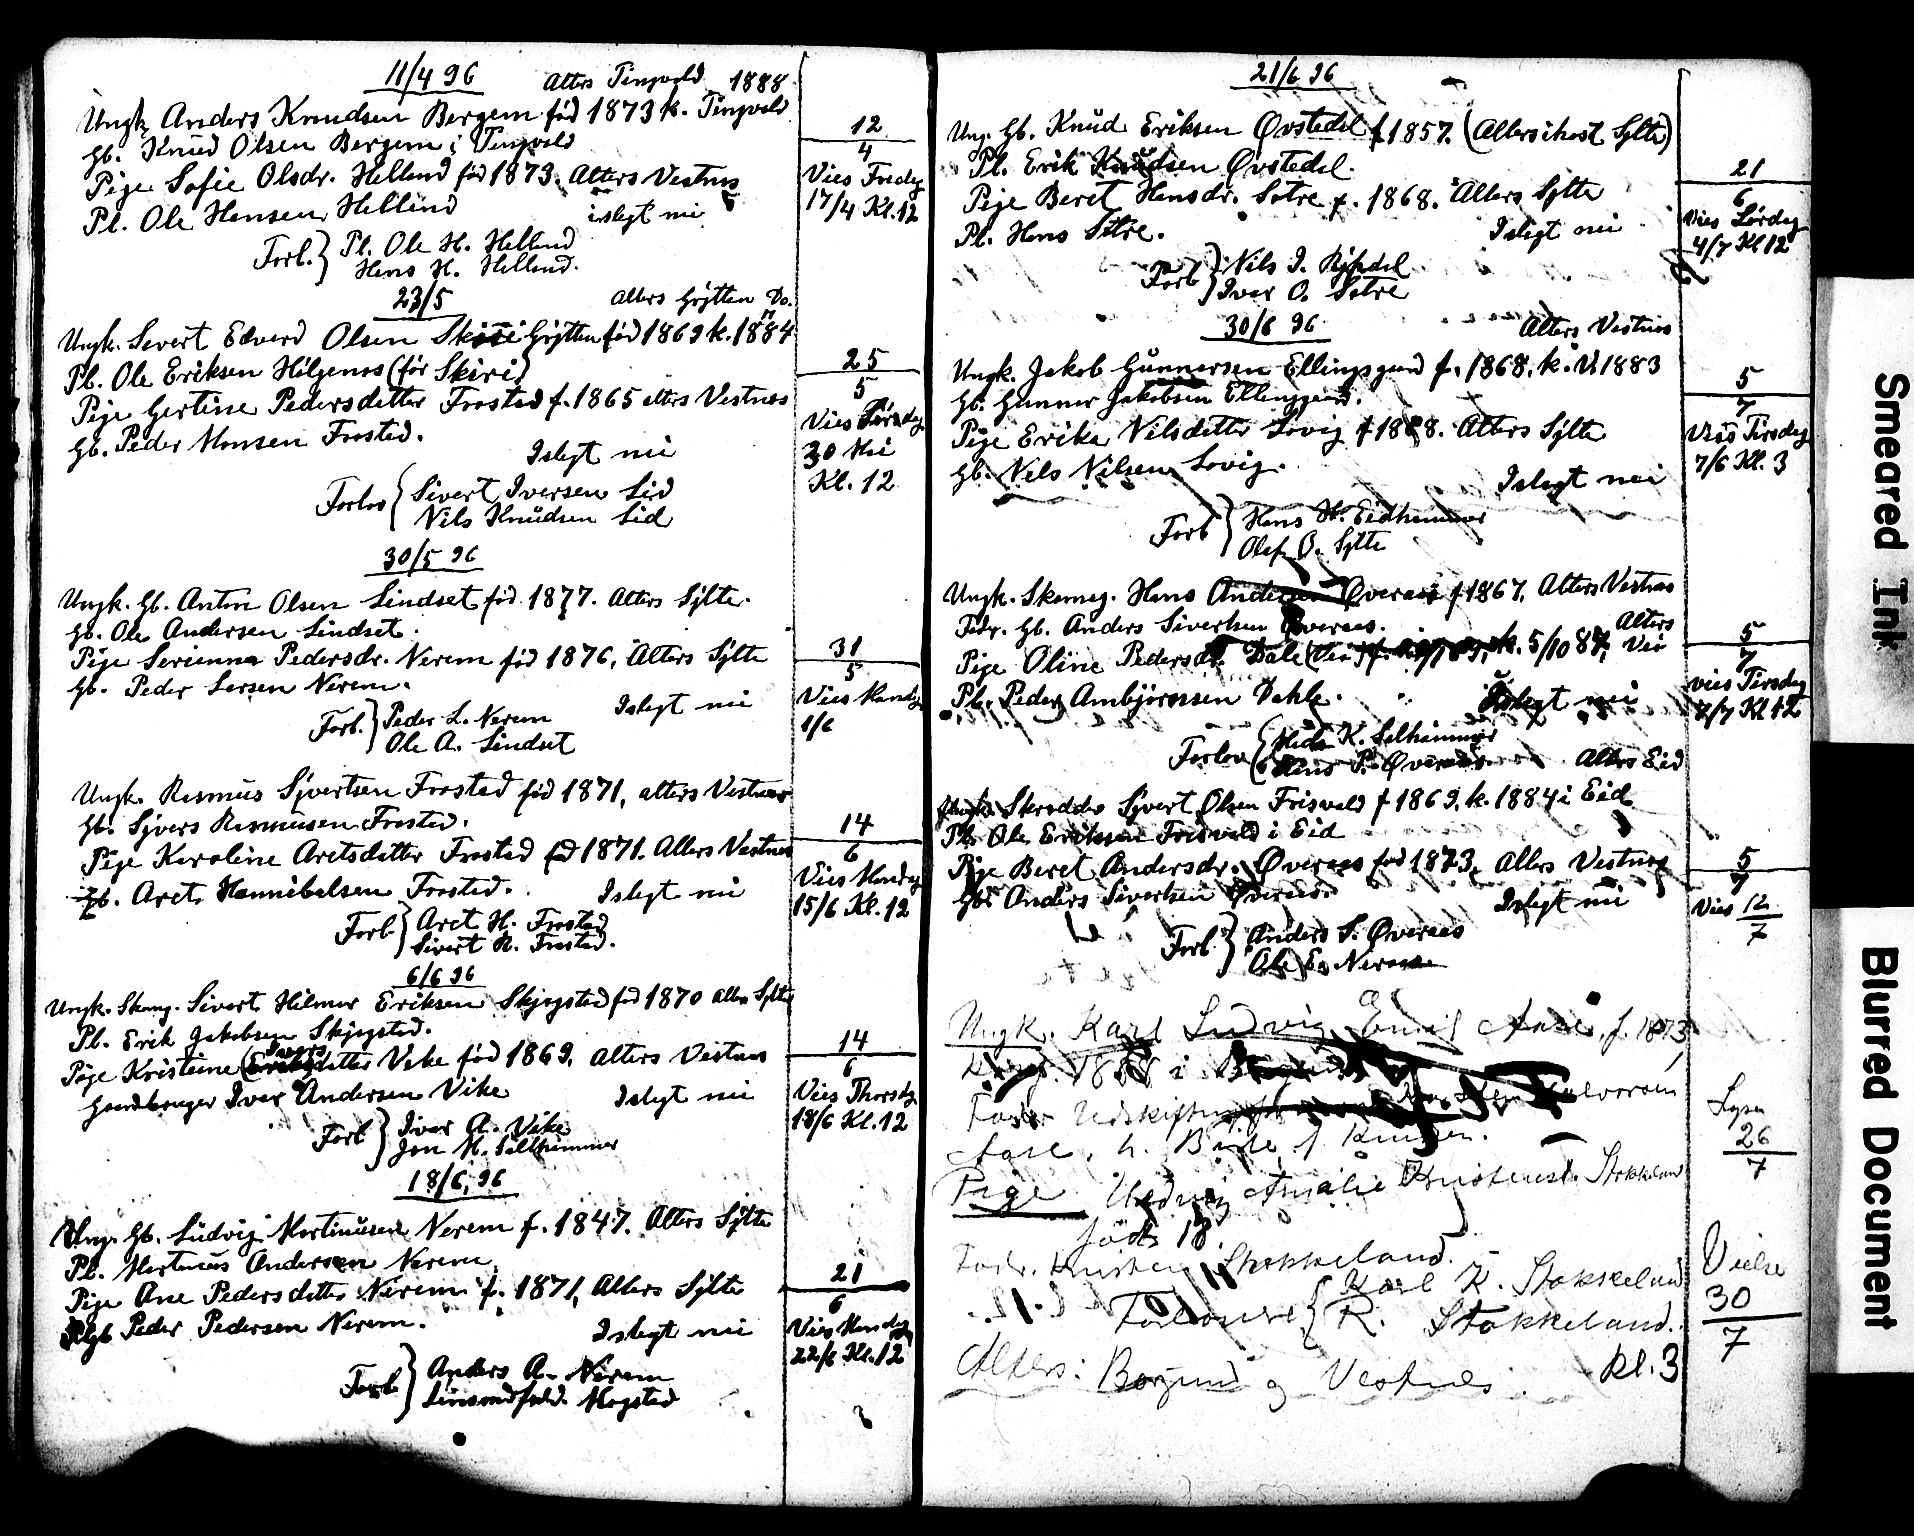 11/4 96
Atters Tingvold 1888
Ungk. Anders Knudsen Bergem fød 1873 k. Tingvold
Gb. Knud Olsen Bergem i Tingvold
Pige Sofie Olsdr. Helland fød 1873. Atters Vestnes
Pl. Ole Hansen Helland
islegt nei
Forl. } Pl. Ole H. Helland
Hans H. Helland.
12
4
Vies Fredag
17/4 Kl. 12
23/5
Atters Grytten Do.
Ungk. Severt Edvard Olsen Skiri Grytten fød 1869 k. 1884
Pl. Ole Eriksen Hilgenes (før Skiri)
Pige Gertine Pedersdatter Frostad f. 1865 atters Vestnes
Gb. Peder Monsen Frostad.
Islegt nei
Forlov { Sivert Iversen Lid
Nils Knudsen Lid
25
5
Vies Lørdag
30 Mai
Kl. 12
30/5 96
Ungk. Gb. Anton Olsen Lindset fød 1877. Atters Sylte.
Gb. Ole Andersen Lindset.
Pige Serianna Pedersdr. Nerem fød 1876, Atters Sylte
Gb. Peder Larsen Nerem.
Islegt nei
Forb. } Peder L. Nerem
Ole A. Lindset
31
5
Vies Mandag
1/6
Ungk. Rasmus Sjvertsen Frostad fød 1871, atters Vestnes
Gb. Sjvert Rasmusen Frostad.
Pige Karoline Aretsdatter Frostad fød 1871. Atters Vestnes
Gb. Aret Hannibalsen Frostad.
Islegt nei
Forb } Aret H. Frostad
Sivert R. Frostad.
14
6
Vies Mandag
15/6 Kl. 12
6/6 96
Ungk. Skomg. Sivert Hilmar Eriksen Skjegstad fød 1870 atters Sylte
Pl. Erik Jakobsen Skjegstad.
Pige Kristiine Iversdatter Vike fød 1869, Atters Vestnes
Gaardbruger Iver Andersen Vike
Islegt nei
Forb } Iver A. Vike
Jon M. Selthammer
14
6
Vies Thorsdg
18/6 Kl. 12
18/6, 96
Ung. Gb. Ludvig Martinusen Nerem f. 1847. Atters Sylte
Pl. Martinus Andersen Nerem.
Pige Ane Pedersdatter Nerem f. 1871, Atters Sylte
Gb Peder Pedersen Nerem.
Islegt nei
Forb } Anders A. Nerem
Mogstad
21
6
Vies Mandag
22/6 Kl. 12
21/6 96
Ung. Gb. Knud Eriksen Øvstedal f 1857. (Atters ihøst Sylte)
Pl. Erik Knudsen Øvstedal.
Pige Beret Hansdr. Sotre f. 1868. Atters Sylte
Pl. Hans Sotre.
Islegt nei
Forb } Nils I. Rypdal
Iver O. Sotre
21
6
Vies Lørdag
4/7 Kl 12
30/6 96
Atters Vestnes
Ungk. Jakob Gunnersen Ellingsgaard f. 1868. k. V. 1883
Gb. Gunner Jakobsen Ellingsgaard.
Pige Erika Nilsdatter Lovig f 1868. Atters Sylte
Gb. Nils Nilsen Lovig.
Islegt nei
Forb } Hans H. Eidhammer
Olaf O. Sylte
5
7
Vies Tirsdag
7/6 Kl. 3
Ungk. Skomag. Hans Andersen Øveraas f 1867, Atters Vestnes
Fadr. Gb. Anders Sivertsen Øveraas.
Atters
Pige Oline Pedersdr. Dale k. 5/10 87, Veø
Pl. Peder Ambjørnsen Dahle.
Islegt nei
Forlov { K. Selhammer
Hans P. Øveraas
5
7
vies Tirsdag
7/7 Kl 12
Atters Eid
Ungk. Skredder Sjvert Olsen Frisvold f 1869, k. 1884 i Eid
Pl. Ole Eriksen Frisvold i Eid
Pige Beret Andersdr. Øveraas fød 1873, Atters Vestnes
Gb. Anders Sivertsen Øveraas.
Islegt nei
Forb } Anders S. Øveraas
Ole E. Neraas
5
7
Vies 12
7
Ungk. Karl Ludvig Emil Aase, f. 1873
1888 i
Fader Udskiftn Halvorsen
Aase, h. f. Knudsen.
Pige Hedvig Amalie Kristensd. Stokkeland
født 18
Fadr. Kristen Stokkeland.
Forlovere { Karl K. Stokkeland
R. Stokkeland.
Atters: Borgund og Vestnes. kl. 3
Lysn
26
7
Vielse
30
7
Smeared Ink
Blurred Document